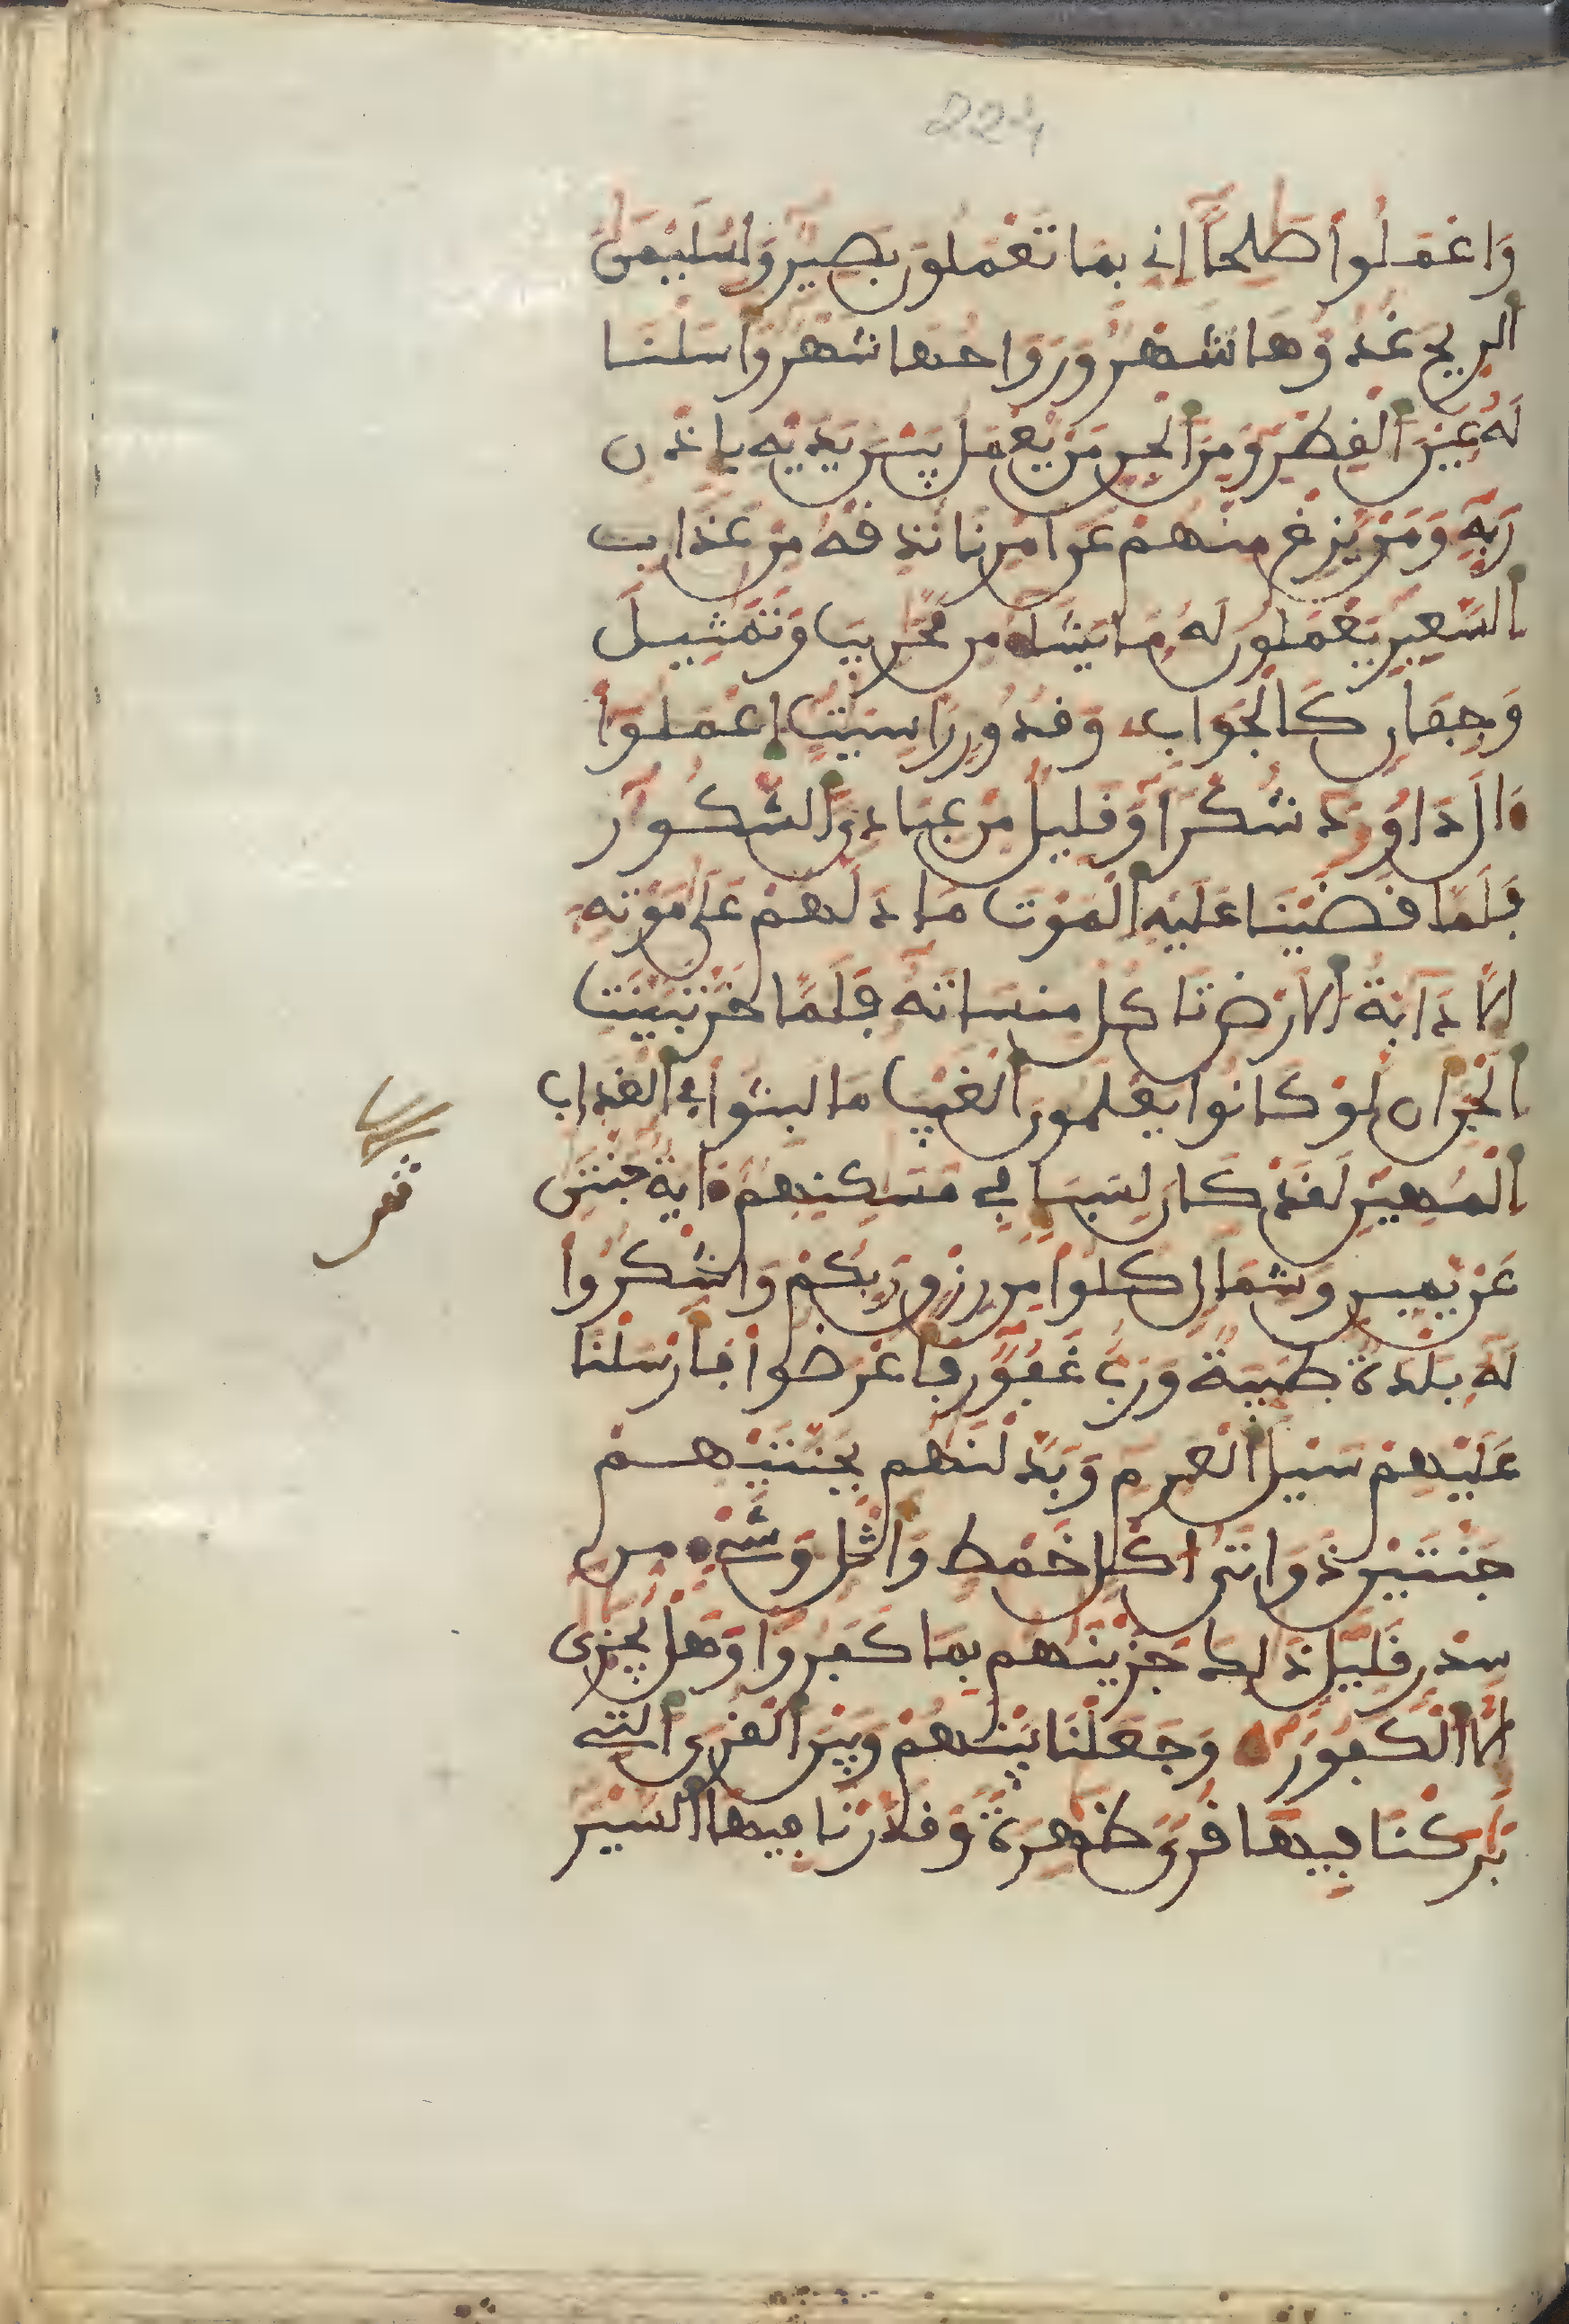 224
وَاعْمَلُوا صَٰلِحاً اِنِّے بِمَا تَعْمَلُونَ بَصِيرٌ وَلِسُلَيْمَٰنَ
اَلرِّيحَ غُدُوُّهَا شَهْرٌ وَرَوَاحُهَا شَهْرٌ وَأَسَلْنَا
لَهُ عَيْنَ اَلْفِطْرِ وَمِنَ اَلْجِنِّ مَنْ يَّعْمَلُ بَيْنَ يَدَيْهِ بِإِذْنِ
رَبِّهِ وَمَنْ يَّزِغْ مِنْهُمْ عَنَ اَمْرِنَا نُذِفْهُ مِنْ عَذَابِ
اِلسَّعِيرِ يَعْمَلُونَ لَهُ مَا يَشَآءُ مِن مَّحَٰرِيبَ وَتَمَٰثِيلَ
وَجِفَانٍ كَالْجَوَابِ وَفُدُورٍ رَّاسِيَٰتٍ اِعْمَلُوٓا
ءَالَ دَاوُۥدَ شُكْراً وَفَلِيلٌ مِّنْ عِبَادِيَ اَلشَّكُورُ
فَلَمَّا فَضَيْنَا عَلَيْهِ اِلْمَوْتَ مَا دَلَّهُمْ عَلَىٰ مَوْتِهِ
إِلَّا دَآبَّةُ اُلَارْضِ تَاكُلُ مِنسَاتَهُ فَلَمَّا خَرَّ تَبَيَّنَتِ
اِلْجِنُّ أَن لَّوْ كَانُوا يَعْلَمُونَ اَلْغَيْبَ مَا لَبِثُوا فِے اِلْعَذَابِ
اِلْمُهِينِ لَفَدْ كَانَ لِسَبَإٍ فِے مَسَٰكِنِهِمُ ءَايَةٌ جَنَّتَٰنِ
عَنْ يَّمِينٍ وَشِمَالٍ كُلُوا مِن رِّزْقِ رَبِّكُمْ وَاشْكُرُوا
لَهُ بَلْدَةٌ طَيِّبَةٌ وَرَبٌّ غَفُورٌ فَأَعْرَضُوا فَأَرْسَلْنَا
عَلَيْهِمْ سَيْلَ اَلْعَرِمِ وَبَدَّلْنَٰهُم بِجَنَّتَيْهِمْ
جَنَّتَيْنِ ذَوَاتَيُ اكْلٍ خَمْطٍ وَأَثْلٍ وَشَےْءٍ مِّن
سِدْرٍ فَلِيلٍ ذَٰلِكَ جَزَيْنَٰهُم بِمَا كَفَرُوا وَهَلْ يُجَٰزَىٰ
إِلَّا اَلْكَفُورُ وَجَعَلْنَا بَيْنَهُمْ وَبَيْنَ اَلْفُرَى اَلتِے
بَٰرَكْنَا فِيهَا فُرًى ظَٰهِرَةً وَفَدَّرْنَا فِيهَا اَلسَّيْرَ